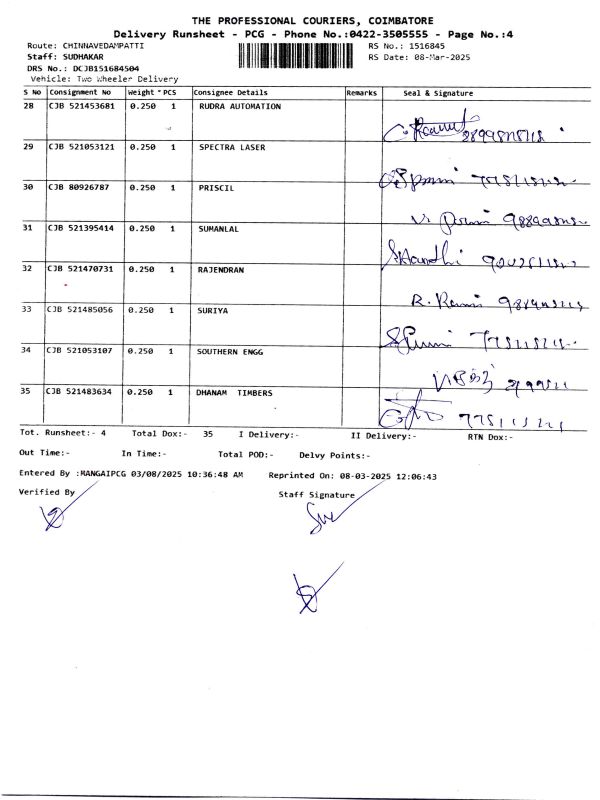 THE PROFESSIONAL COURIERS, COIMBATORE
Delivery Runsheet - PCG - Phone No.:0422-3505555 - Page No.:4
Route: CHINNAVEDAMPATTI RS No.: 1516845
Staff: SUDHAKAR RS Date: 08-Mar-2025
DRS No.: DCJB151684504
Vehicle: Two Wheeler Delivery
S No Consignment No Weight * PCS Consignee Details Remarks Seal & Signature
28 CJB 521453681 0.250 1 RUDRA AUTOMATION
29 CJB 521053121 0.250 1 SPECTRA LASER
30 CJB 80926787 0.250 1 PRISCIL
31 CJB 521395414 0.250 1 SUMANLAL
32 CJB 521470731 0.250 1 RAJENDRAN
33 CJB 521485056 0.250 1 SURIYA
34 CJB 521053107 0.250 1 SOUTHERN ENGG
35 CJB 521483634 0.250 1 DHANAM TIMBERS
Tot. Runsheet:- 4 Total Dox:- 35 I Delivery:- II Delivery:- RTN Dox:-
Out Time:- In Time:- Total POD:- Delvy Points:-
Entered By :MANGAIPCG 03/08/2025 10:36:48 AM Reprinted On: 08-03-2025 12:06:43
Verified By Staff Signature